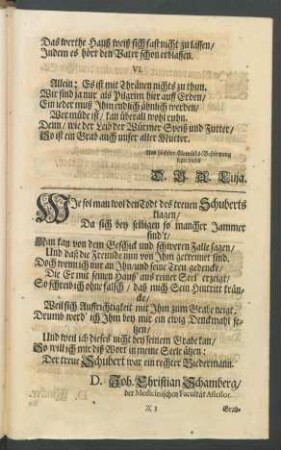 Das werthe Hauß weiß sich fast nicht zu lassen/
Indem es hört den Vater schon erblassen.
VI.
Allein: Es ist mit Thränen nichts zu thun.
Wir sind ja nur als Pilgrim hier auff Erden/
Ein ieder muß Ihm endlich ähnlich werden/
Wer müde ist/ kan überall wohl ruhn.
Denn/ wie der Leib der Würmer Speiß und Futter/
So ist ein Grab auch unser aller Mutter.
D. B. A.
WIe sol man wol den Todt des treuen Schuberts
klagen/
Da sich bey selbigen so mancher Jammer
find't/
Man kan von dem Geschick und schweren Falle sagen/
Und daß die Freunde nun von Ihm getrennet sind.
Doch wenn ich nur an Ihn und seine Treu gedencke/
Die Er mit seinen Hauß aus reiner Seel' erzeigt/
So schreib ich ohne falsch/ daß mich Sein Hintritt kräncke/
Weil sich Auffrichtigkeit mit Ihm zum Grabe neigt/
Drumb werd' ich Ihm bey mir ein ewig Denckmahl setzen/
Und weil ich dieses nicht bey seinem Grabe kan/
So will ich mir diß Wort in meine Seele ätzen:
Der treue Schubert war ein rechter Biedermann.
D. Joh. Christian Schamberg/
der Medicinischen Facultät Assessor.